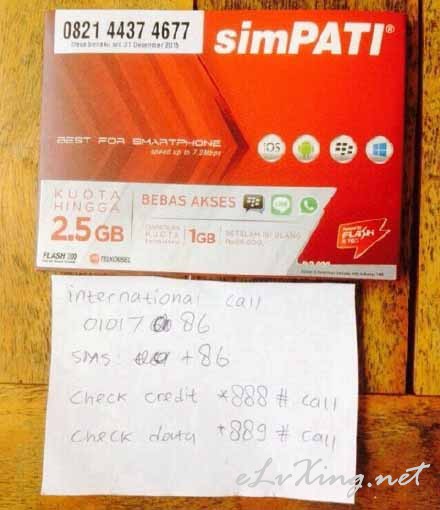 0821 4437 4677
simPATI®
BEST FOR SMARTPHONE
speed up to 7.2Mbps
iOS
KUOTA
HINGGA
2.5GB
BEBAS AKSES
KUOTA
1GB
SETELAH ISI ULANG
FLASH
TELKOMSEL
FLASH
international call
01017 86
SMS: +86
check credit *888 # call
check data *889 # call
eLvXing.net